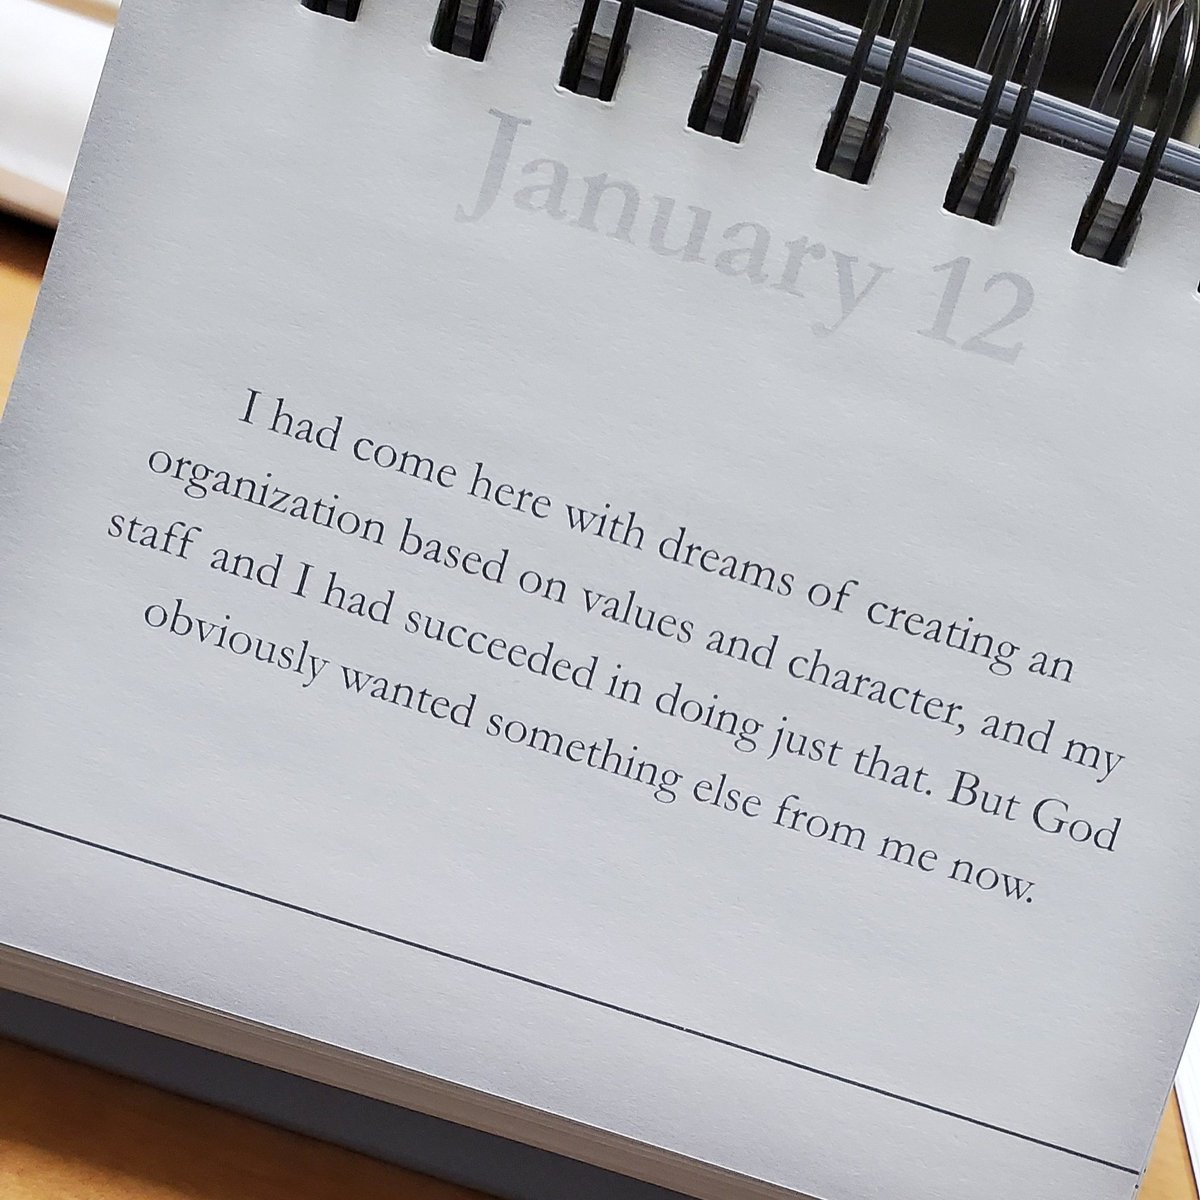 January 12
I had come here with dreams of creating an
organization based on values and character, and my
staff and I had succeeded in doing just that. But God
obviously wanted something else from me now.